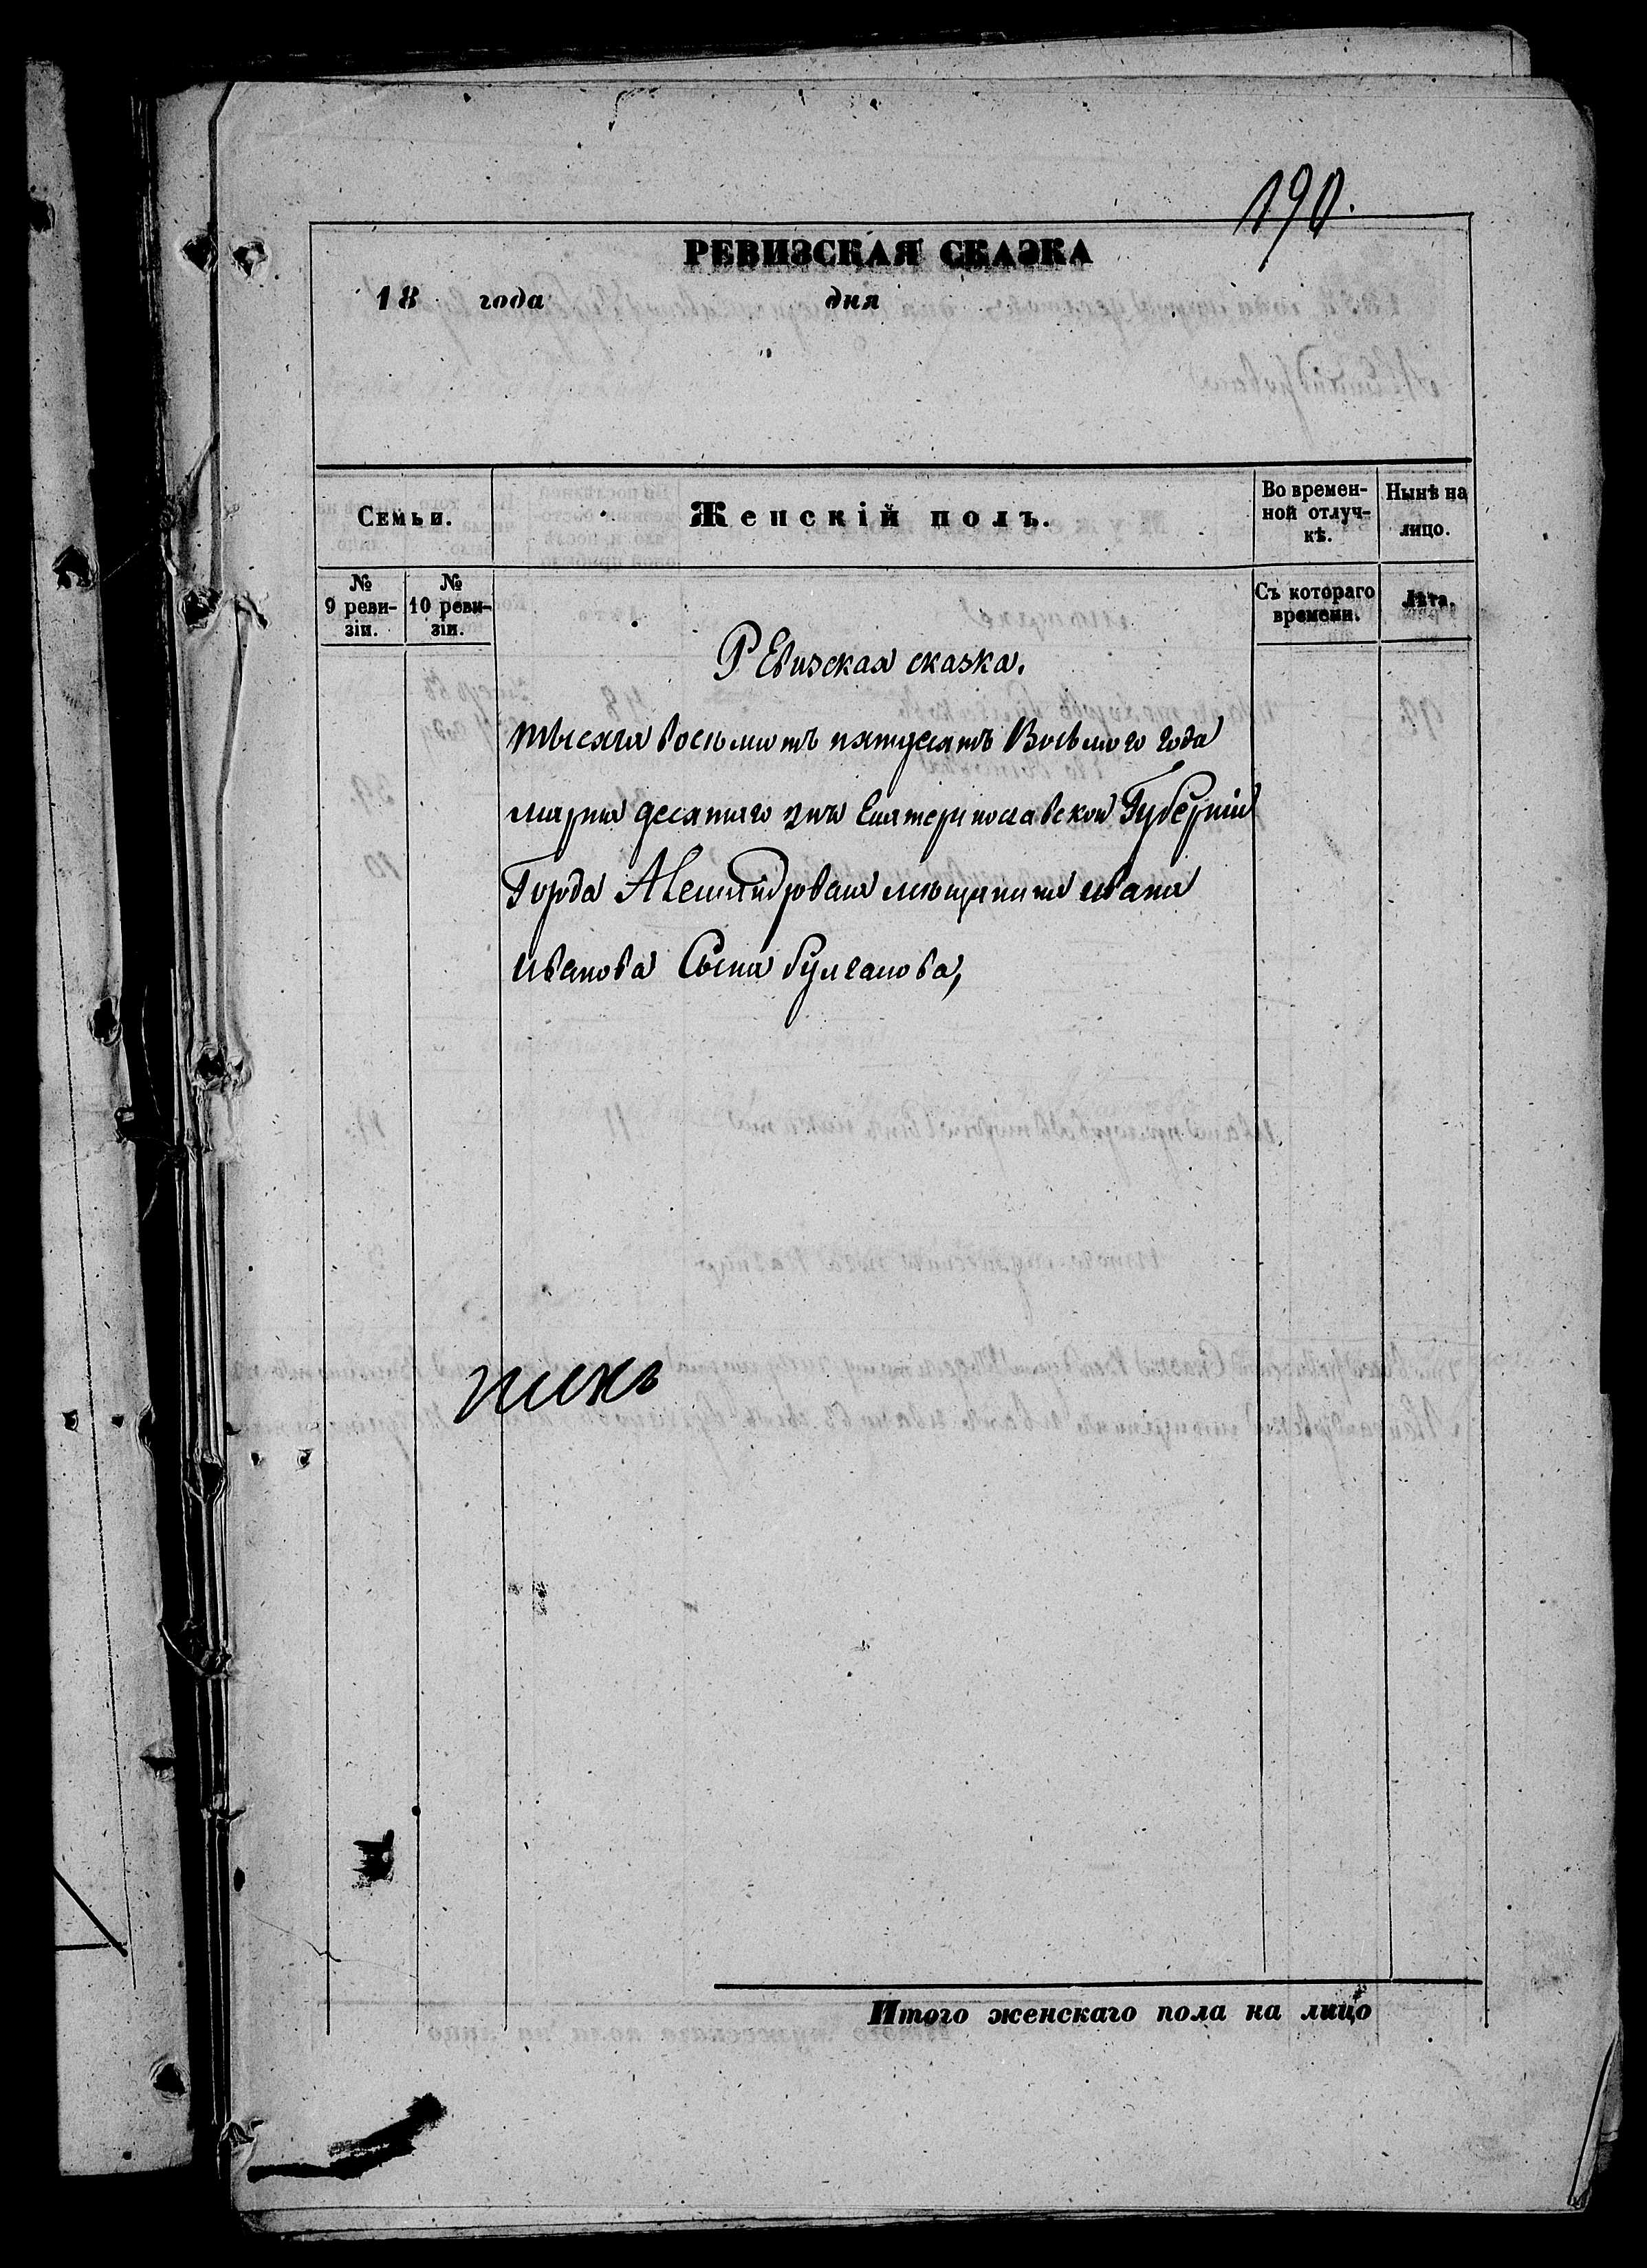 190.
РЕВИЗСКАЯ СКАЗКА
18 года дня
Семьи.
Женскій полъ.
Во времен-
ной отлуч-
кѣ.
Нынѣ на
лицо.
№
9 реви-
зіи.
№
10 реви-
зіи.
Съ котораго
времени.
Лѣта.
Ревизская сказка.
тысяча восьмистъ пятдесятъ Восьмого года
марта десятаго дня Екатеринославской Губерніи
Города Александровска мещанина ивана
иванова Сына булгакова,
Итого женскаго пола на лицо